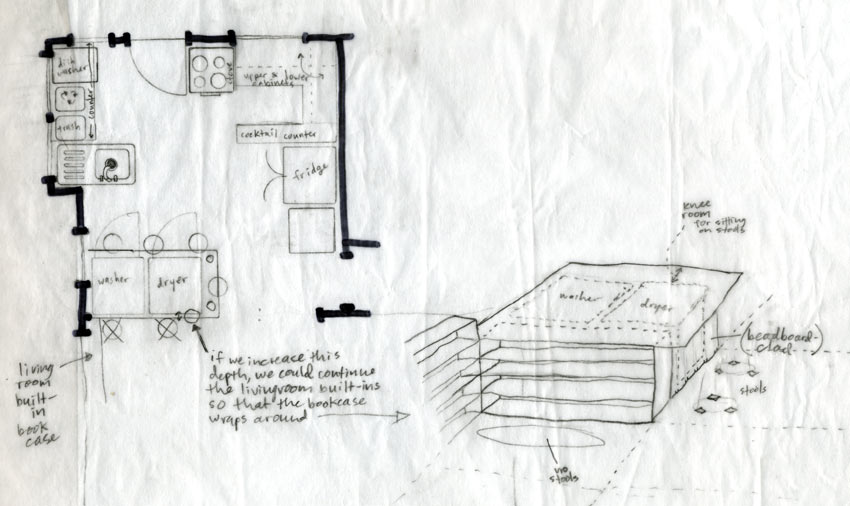 dish
washer
counter
trash
stove
upper & lower
cabinets
cocktail counter
fridge
washer
dryer
living
room
built-
in
book
case
if we increase this
depth, we could continue
the livingroom built-ins
so that the bookcase
wraps around
knee
room
for sitting
on stools
washer
dryer
(beadboard-)
clad
stools
no
stools